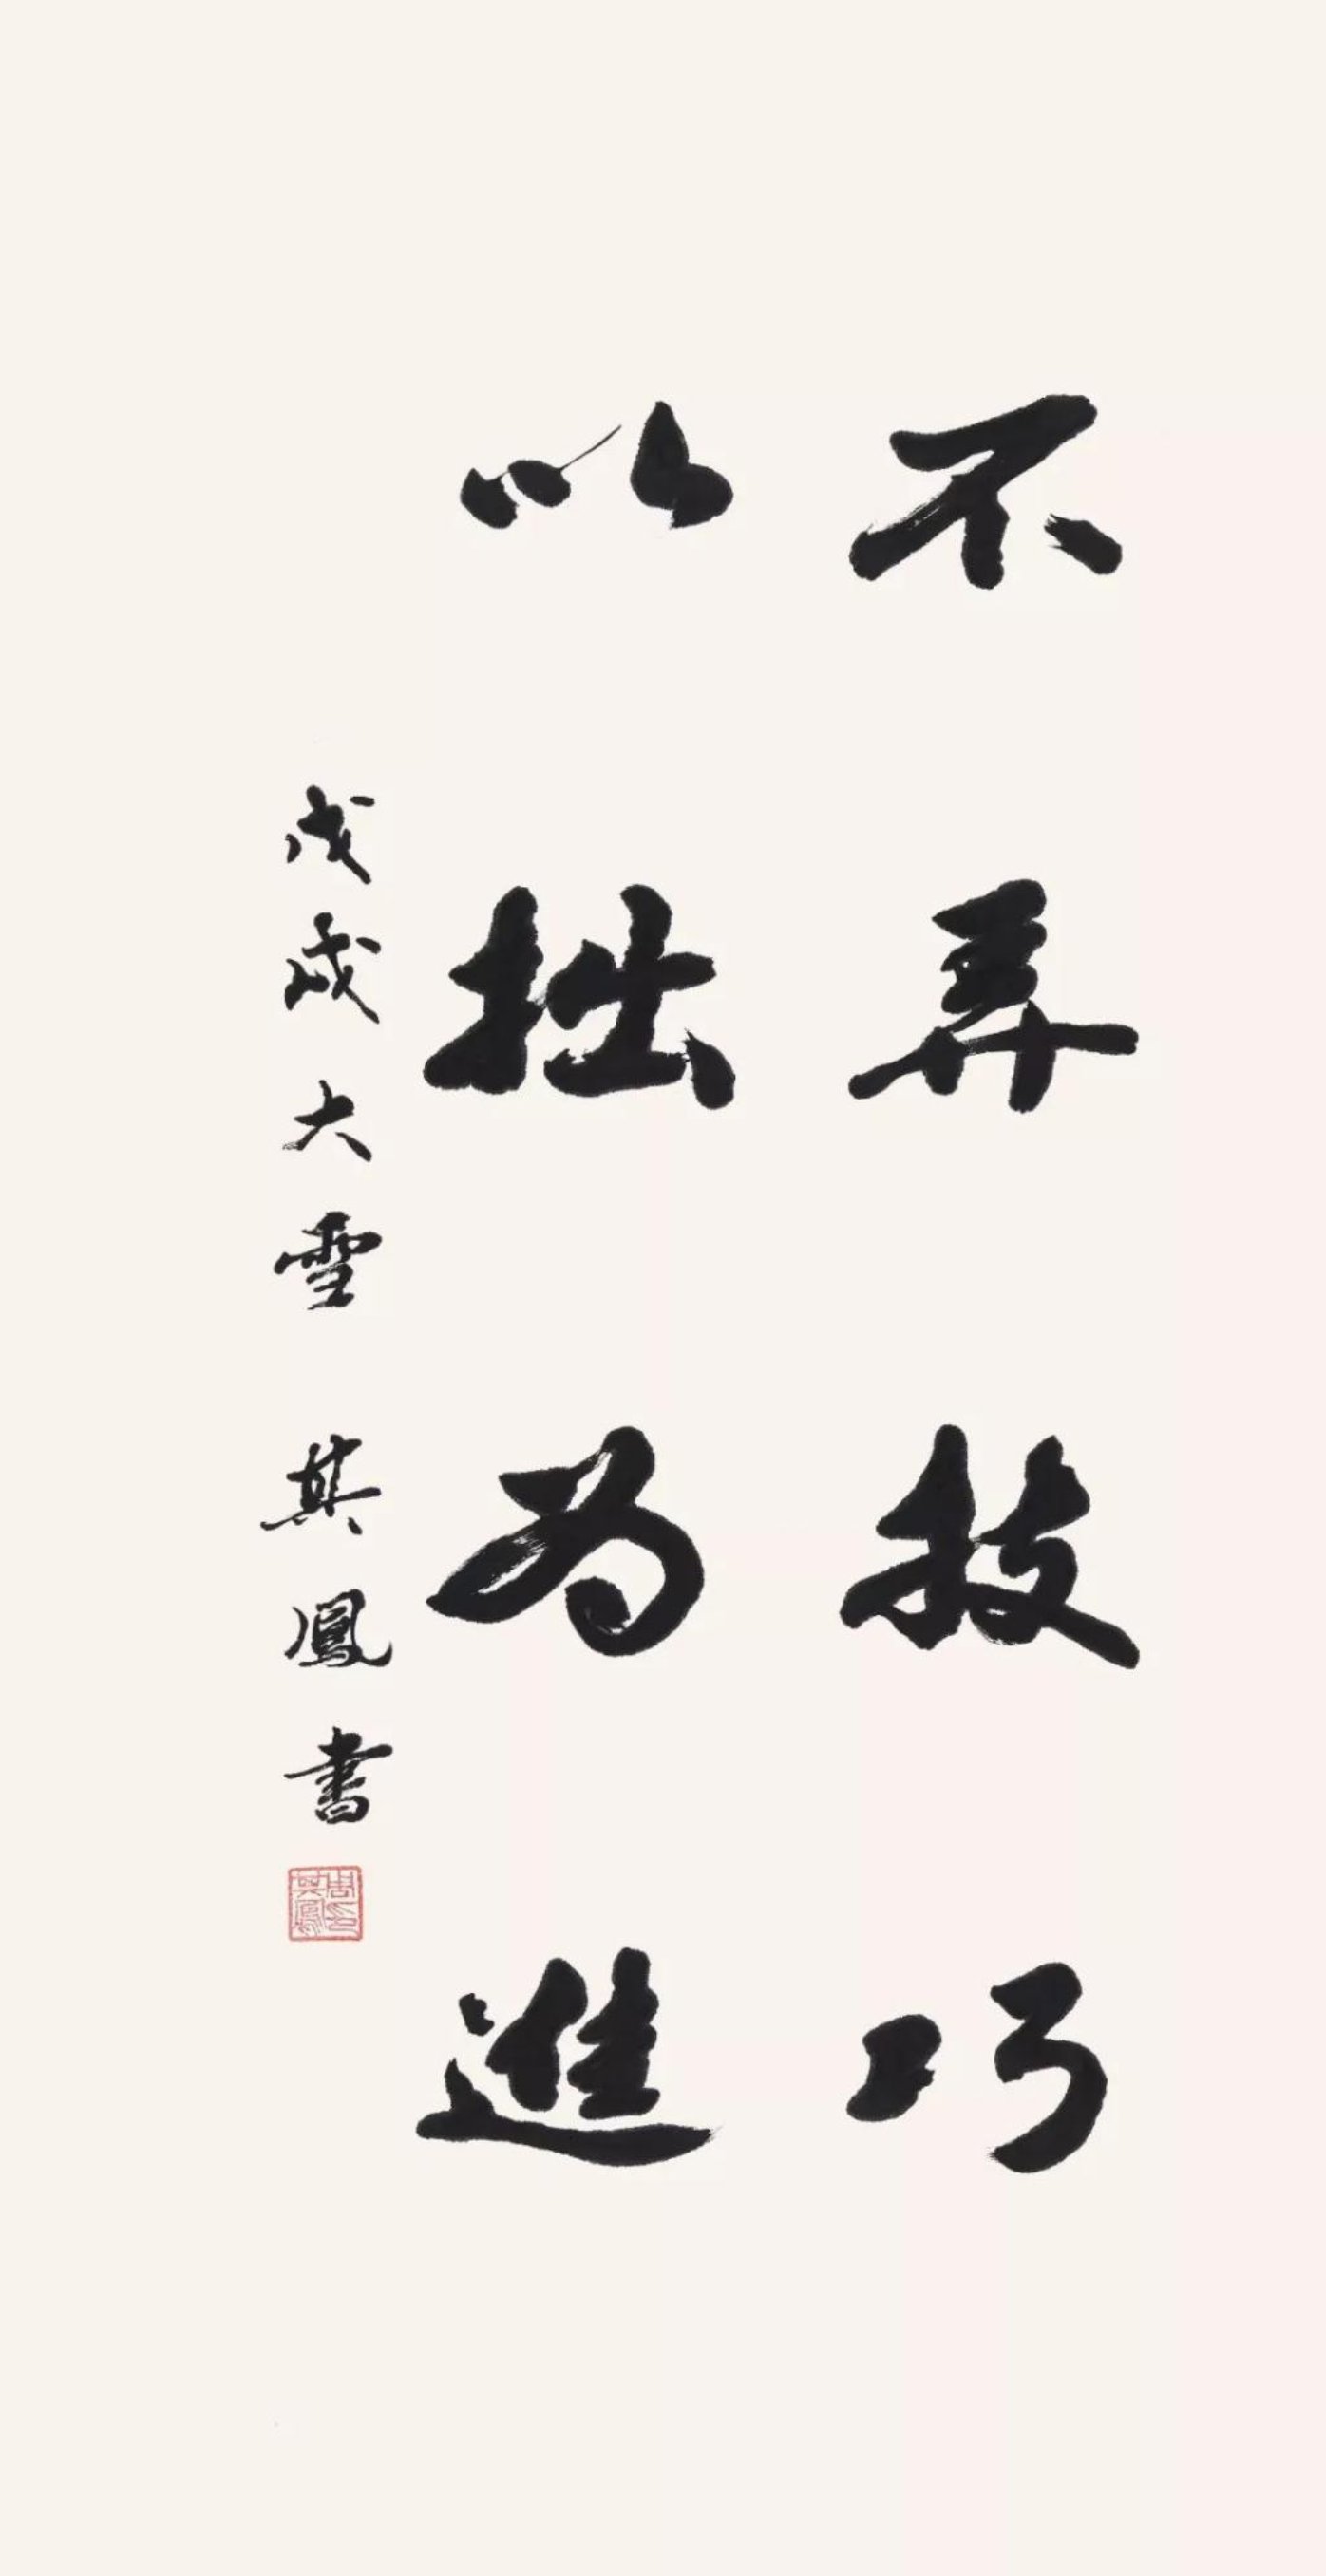 不弄技巧
以拙为進
戊戌大雪 其鳳書
周印其鳳